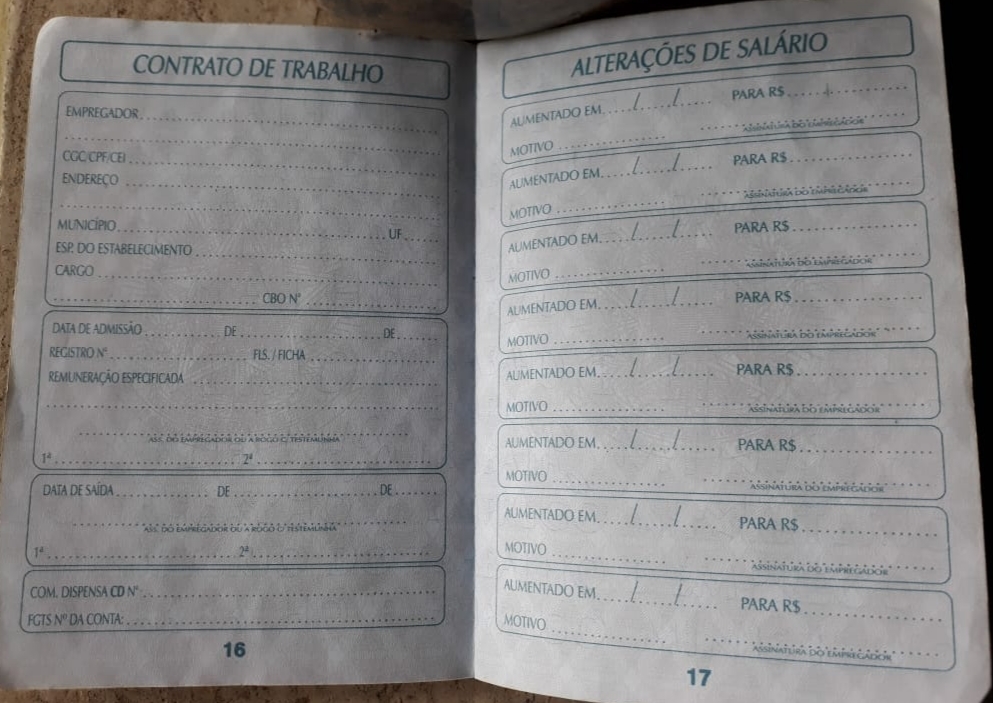 CONTRATO DE TRABALHO
EMPREGADOR
CGC/CPF/CEI
ENDEREÇO
MUNICÍPIO UF
ESP. DO ESTABELECIMENTO
CARGO
CBO Nº
DATA DE ADMISSÃO DE DE
REGISTRO Nº FLS. / FICHA
REMUNERAÇÃO ESPECIFICADA
ASS. DO EMPREGADOR OU A ROGO C/ TESTEMUNHA
1ª 2ª
DATA DE SAÍDA DE DE
ASS. DO EMPREGADOR OU A ROGO C/ TESTEMUNHA
1ª 2ª
COM. DISPENSA CD Nº
FGTS Nº DA CONTA:
16
ALTERAÇÕES DE SALÁRIO
AUMENTADO EM / / PARA R$
MOTIVO ASSINATURA DO EMPREGADOR
AUMENTADO EM / / PARA R$
MOTIVO ASSINATURA DO EMPREGADOR
AUMENTADO EM / / PARA R$
MOTIVO ASSINATURA DO EMPREGADOR
AUMENTADO EM / / PARA R$
MOTIVO ASSINATURA DO EMPREGADOR
AUMENTADO EM / / PARA R$
MOTIVO ASSINATURA DO EMPREGADOR
AUMENTADO EM / / PARA R$
MOTIVO ASSINATURA DO EMPREGADOR
AUMENTADO EM / / PARA R$
MOTIVO ASSINATURA DO EMPREGADOR
AUMENTADO EM / / PARA R$
MOTIVO ASSINATURA DO EMPREGADOR
17